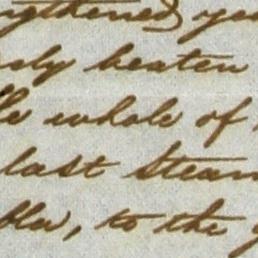 ngthened ye
ely beaten
he whole of
last Steam
ble, to the g